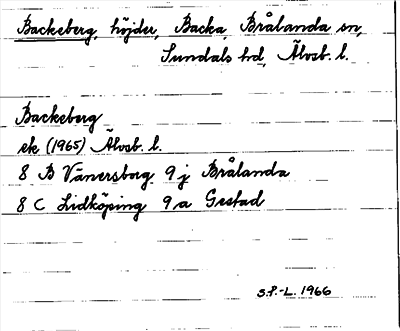 Backeberg, höjder, Backa, Brålanda sn,
Sundals hd, Älvsb. l.
Backeberg
ek (1965) Älvsb. l.
8 B Vänersborg 9 j Brålanda
8 C Lidköping 9 a Gestad
S.P.-L. 1966